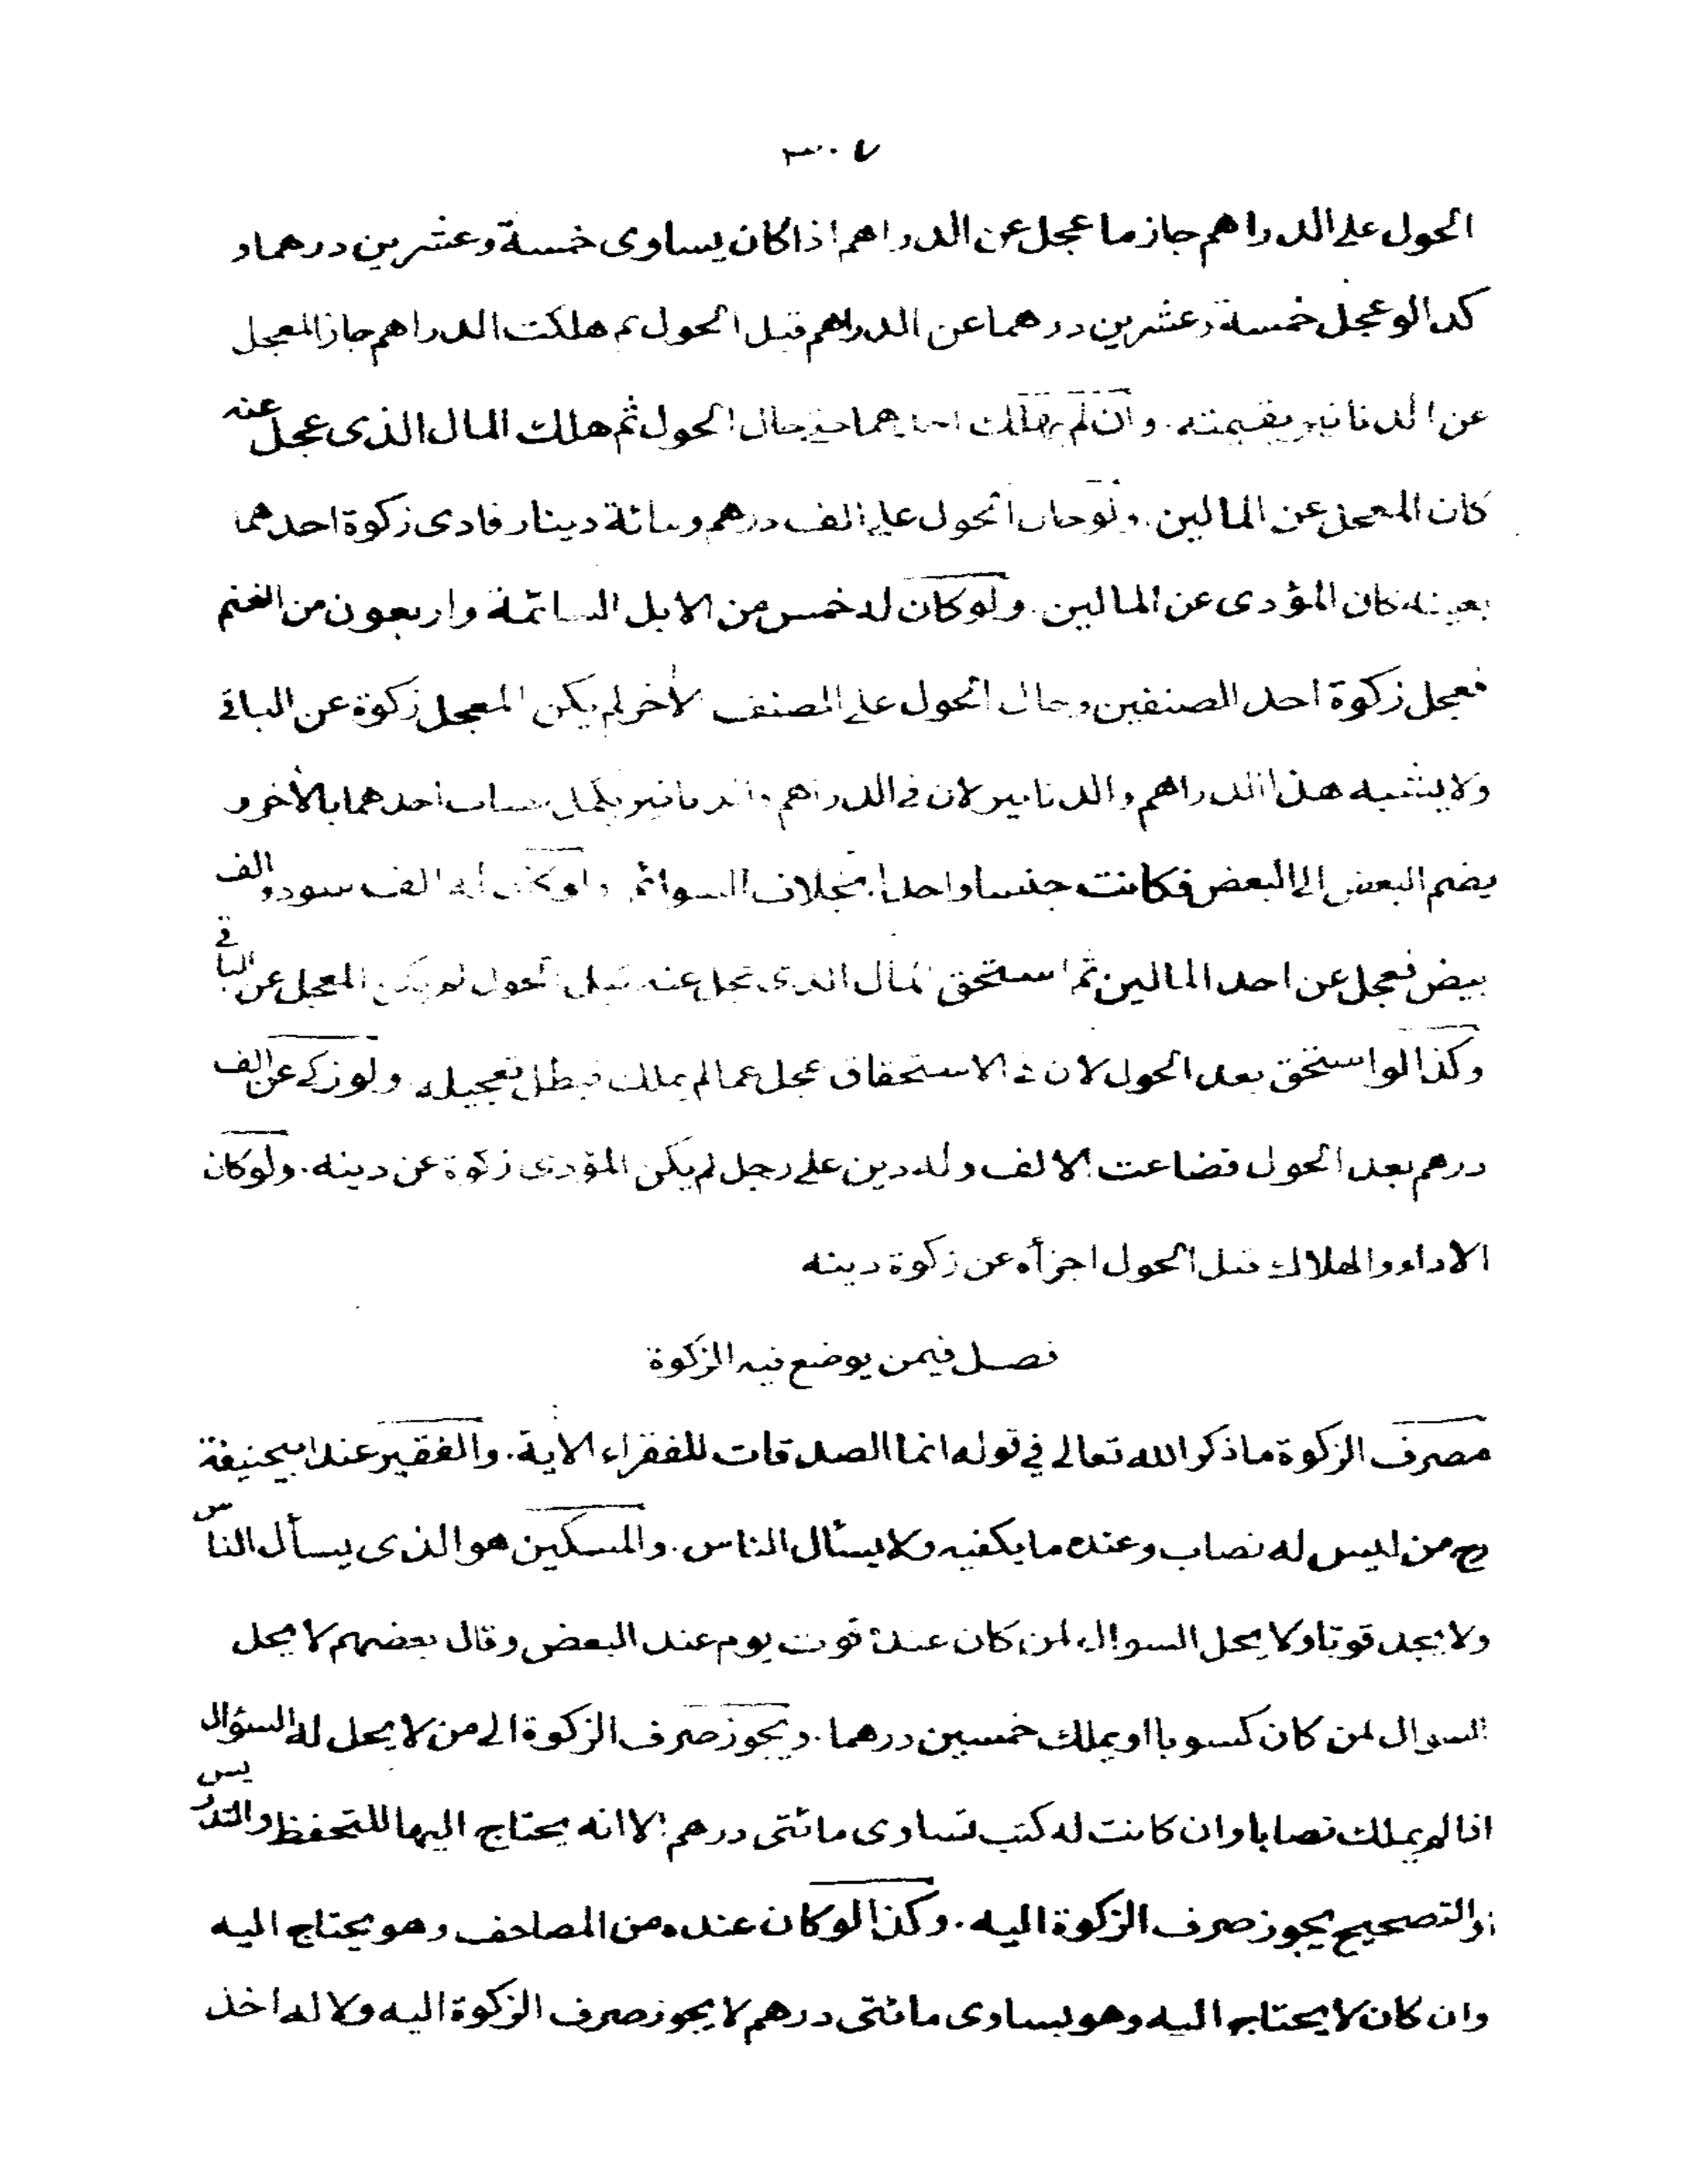 ٣٠٧
الحول على الدراهم جاز ما عجل عن الدراهم اذا كان يساوى خمسة وعشرين درهما و
كذا لو عجل خمسة وعشرين درهما عن الدراهم قبل الحول ثم هلكت الدراهم جاز المعجل
عن الدنانير بقيمته . وان لم يهلك احدهما حتى حال الحول ثم هلك المال الذى عجل عنه
كان المعجل عن المالين . ولو حال الحول على الف درهم ومائة دينار فادى زكوة احدهما
بعينه كان المؤدى عن المالين . ولو كان له خمس من الابل السائمة واربعون من الغنم
فعجل زكوة احد الصنفين وحال الحول على الصنف الأخر لم يكن المعجل زكوة عن الباقى
ولا يشبه هذا الدراهم والدنانير لان فى الدراهم والدنانير يكمل نصاب احدهما بالأخر و
يضم البعض الى البعض فكانت جنسا واحدا بخلاف السوائم ولو كان له الف سود والف
بيض فعجل عن احد المالين ثم استحق المال الذى عجل عنه قبل الحول لم يكن المعجل عن الباقى
وكذا لو استحق بعد الحول لان فى الاستحقاق عجل عما لم يملك فبطل تعجيله ولو زكى عن الف
درهم بعد الحول فضاعت الالف وله دين على رجل لم يكن المؤدى زكوة عن دينه . ولو كان
الاداء والهلاك قبل الحول اجزأه عن زكوة دينه
فصل فيمن يوضع فيه الزكوة
مصرف الزكوة ما ذكر الله تعالى في قوله انما الصدقات للفقراء الاية . والفقير عند ابيحنيفة
رح من ليس له نصاب وعنده ما يكفيه ولا يسأل الناس . والمسكين هو الذى يسأل الناس
ولا يجد قوتا ولا يحل السوال لمن كان عنده قوت يوم عند البعض وقال بعضهم لا يحل
السوال لمن كان كسوبا او يملك خمسين درهما . ويجوز صرف الزكوة الى من لا يحل له السؤال
اذا لم يملك نصابا وان كانت له كتب تساوى مائتى درهم الا انه يحتاج اليها للتحفظ والتدريس
او التصحيح يجوز صرف الزكوة اليه . وكذا لو كان عنده من المصاحف وهو يحتاج اليه
وان كان لا يحتاج اليه وهو يساوى مائتى درهم لا يجوز صرف الزكوة اليه ولا له اخذ